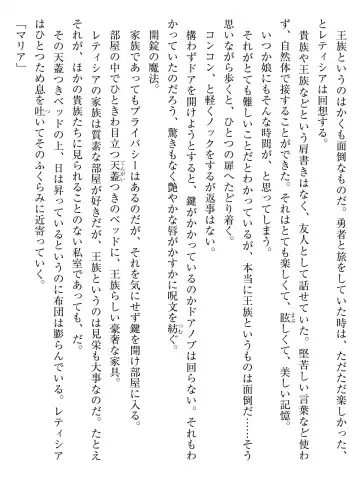 王族というのはかくも面倒なものだ。勇者と旅をしていた時は、ただただ楽しかった、
とレティシアは回想する。
　貴族や王族などという肩書きはなく、友人として話せていた。堅苦しい言葉など使わ
ず、自然体で接することができた。それはとても楽しくて、眩しくて、美しい記憶。
　いつか娘にもそんな時間が、と思ってしまう。
　それがとても難しいことだとわかっているが、本当に王族というものは面倒だ……そう
思いながら歩くと、ひとつの扉へたどり着く。
　コンコン、と軽くノックをするが返事はない。
　構わずドアを開けようとすると、鍵がかかっているのかドアノブは回らない。それもわ
かっていたのだろう、驚きもなく艶やかな唇がかすかに呪文を紡ぐ。
　開錠の魔法。
　家族であってもプライバシーはあるのだが、それを気にせず鍵を開け部屋に入る。
　部屋の中でひときわ目立つ天蓋つきのベッドに、王族らしい豪奢な家具。
　レティシアの家族は質素な部屋が好きだが、王族というのは見栄も大事なのだ。たとえ
それが、ほかの貴族たちに見られることのない私室であっても、だ。
　その天蓋つきベッドの上、日は昇っているというのに布団は膨らんでいる。レティシア
はひとつため息を吐いてそのふくらみに近寄っていく。
「マリア」